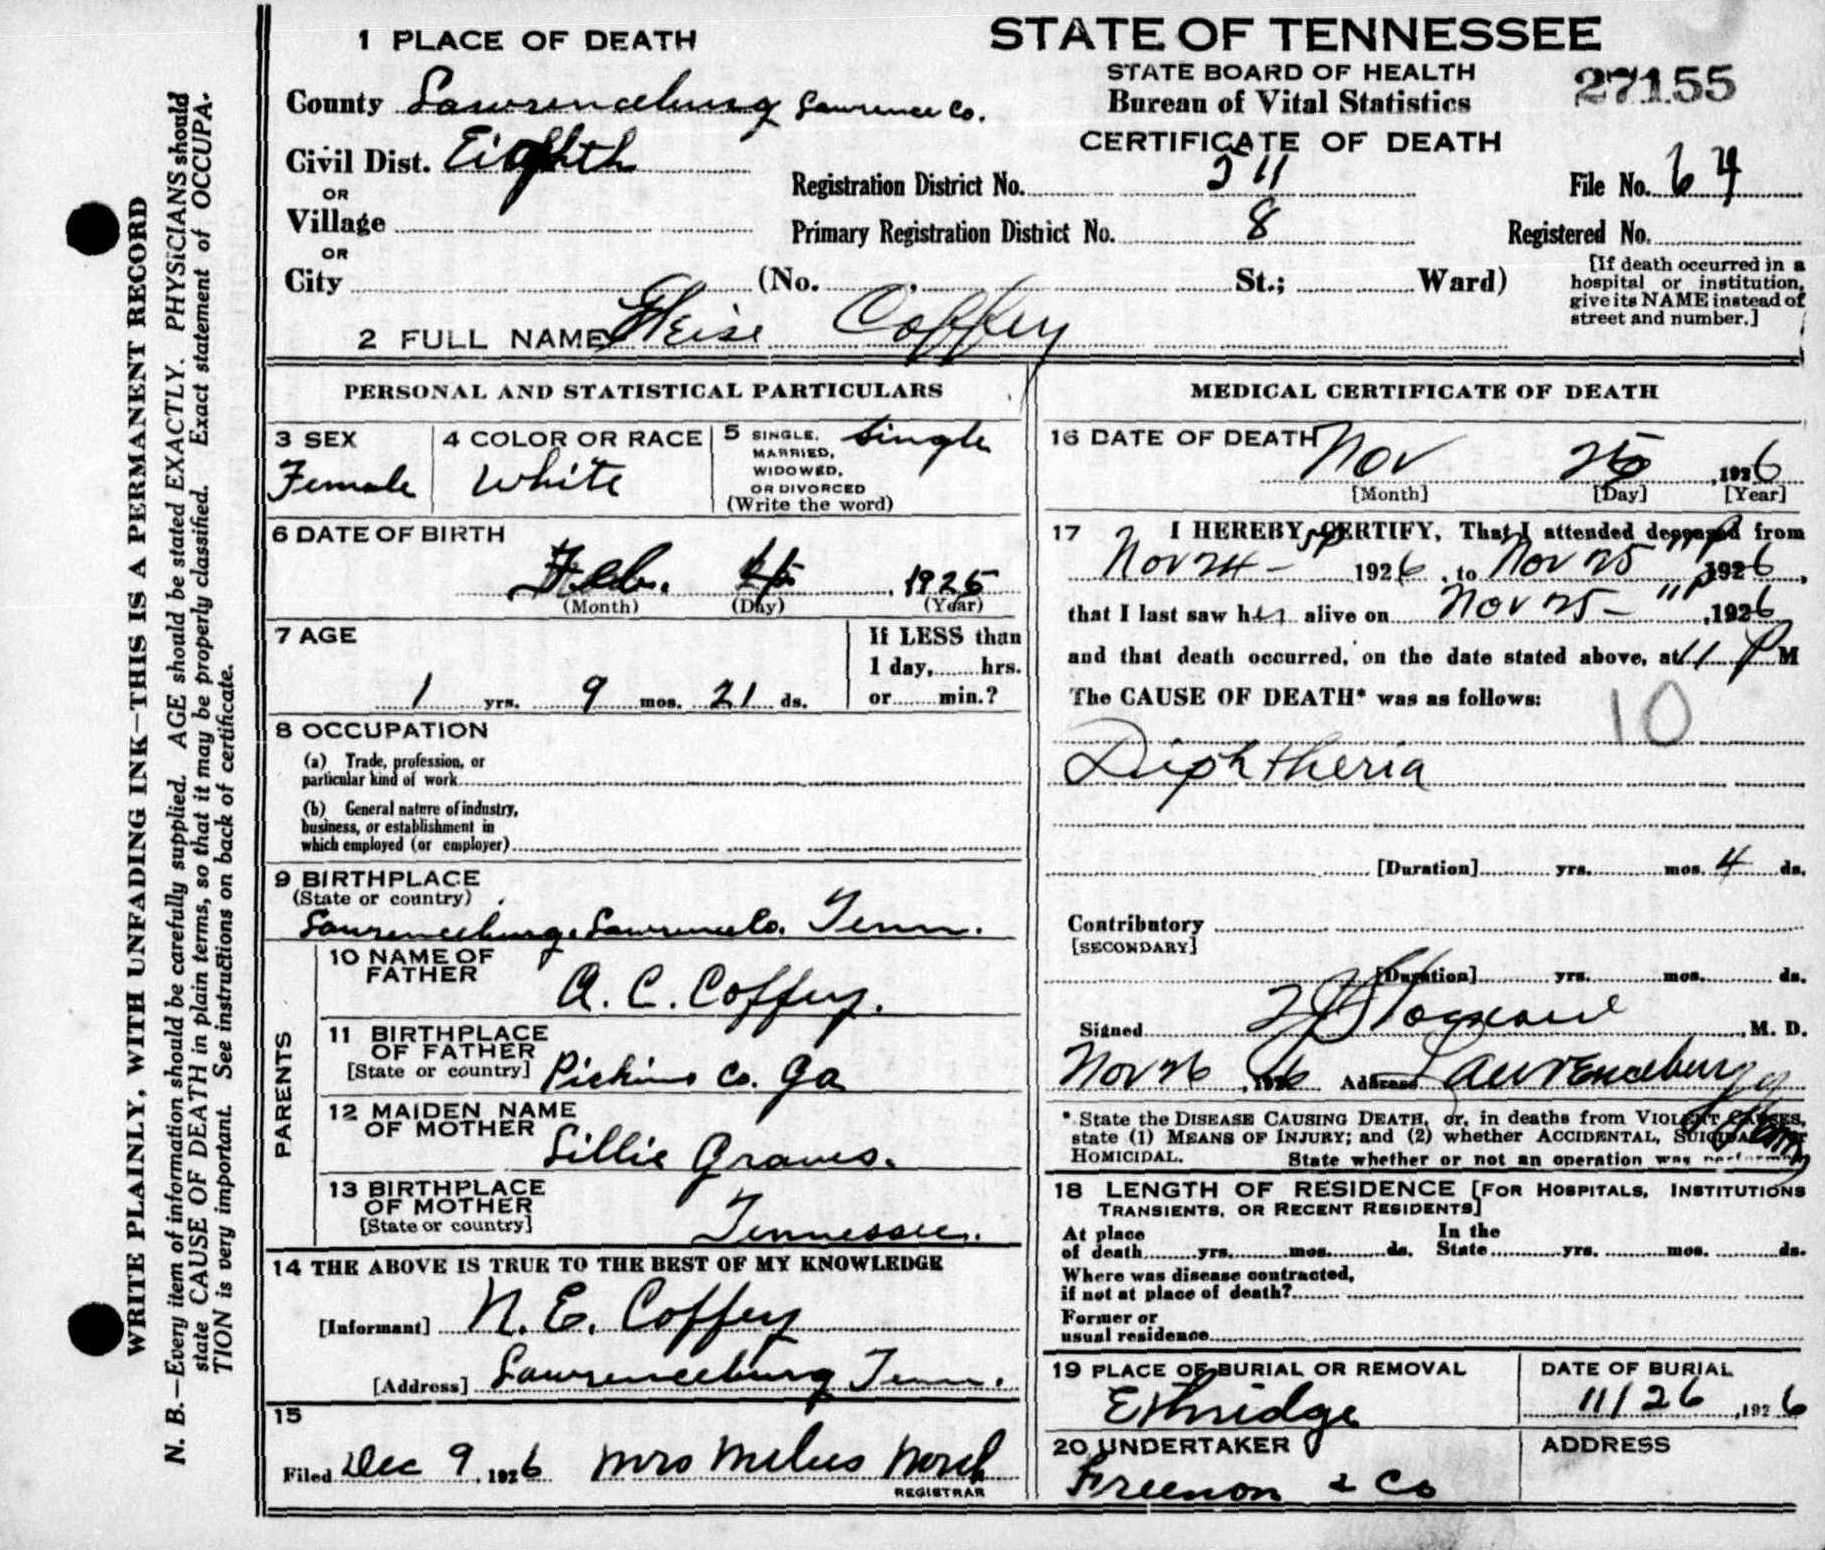 WRITE PLAINLY, WITH UNFADING INK—THIS IS A PERMANENT RECORD
N. B.—Every item of information should be carefully supplied. AGE should be stated EXACTLY. PHYSICIANS should
state CAUSE OF DEATH in plain terms, so that it may be properly classified. Exact statement of OCCUPA-
TION is very important. See instructions on back of certificate.
1 PLACE OF DEATH
County Lawrenceburg Lawrence Co.
Civil Dist. Eighth
OR
Village
OR
City (No. St.; Ward)
STATE OF TENNESSEE
STATE BOARD OF HEALTH
Bureau of Vital Statistics
CERTIFICATE OF DEATH
27155
Registration District No. 511 File No. 64
Primary Registration District No. 8 Registered No.
[If death occurred in a
hospital or institution,
give its NAME instead of
street and number.]
2 FULL NAME Coffey
PERSONAL AND STATISTICAL PARTICULARS
3 SEX
Female
4 COLOR OR RACE
White
5 SINGLE, MARRIED, WIDOWED, OR DIVORCED
(Write the word)
Single
6 DATE OF BIRTH
Feb. 4 1925
(Month) (Day) (Year)
7 AGE
1 yrs. 9 mos. 21 ds.
If LESS than
1 day, hrs.
or min.?
8 OCCUPATION
(a) Trade, profession, or
particular kind of work
(b) General nature of industry,
business, or establishment in
which employed (or employer)
9 BIRTHPLACE
(State or country)
Lawrenceburg, Lawrence Co. Tenn.
PARENTS
10 NAME OF
FATHER
A. C. Coffey.
11 BIRTHPLACE
OF FATHER
[State or country] Pickins Co. Ga
12 MAIDEN NAME
OF MOTHER
Lillie Graves.
13 BIRTHPLACE
OF MOTHER
[State or country]
Tennessee.
14 THE ABOVE IS TRUE TO THE BEST OF MY KNOWLEDGE
[Informant] N. E. Coffey
[Address] Lawrenceburg Tenn.
15
Filed Dec 9, 1926 Mrs
REGISTRAR
MEDICAL CERTIFICATE OF DEATH
16 DATE OF DEATH
Nov 25, 1926
[Month] [Day] [Year]
17 I HEREBY CERTIFY, That I attended deceased from
Nov 24 – 1926, to Nov 25 1926,
that I last saw her alive on Nov 25 – 11 P, 1926
and that death occurred, on the date stated above, at 11 P M
The CAUSE OF DEATH* was as follows:
10
Diphtheria
[Duration] yrs. mos. 4 ds.
Contributory
[SECONDARY]
[Duration] yrs. mos. ds.
Signed M. D.
Nov 26, 1926 Address Lawrenceburg
Tenn
* State the DISEASE CAUSING DEATH, or, in deaths from VIOLENT CAUSES,
state (1) MEANS OF INJURY; and (2) whether ACCIDENTAL, SUICIDAL, or
HOMICIDAL. State whether or not an operation was performed
18 LENGTH OF RESIDENCE [FOR HOSPITALS, INSTITUTIONS
TRANSIENTS, OR RECENT RESIDENTS]
At place
of death yrs. mos. ds.
In the
State yrs. mos. ds.
Where was disease contracted,
if not at place of death?
Former or
usual residence
19 PLACE OF BURIAL OR REMOVAL
Ethridge
DATE OF BURIAL
11/26, 1926
20 UNDERTAKER
Freemon & Co
ADDRESS